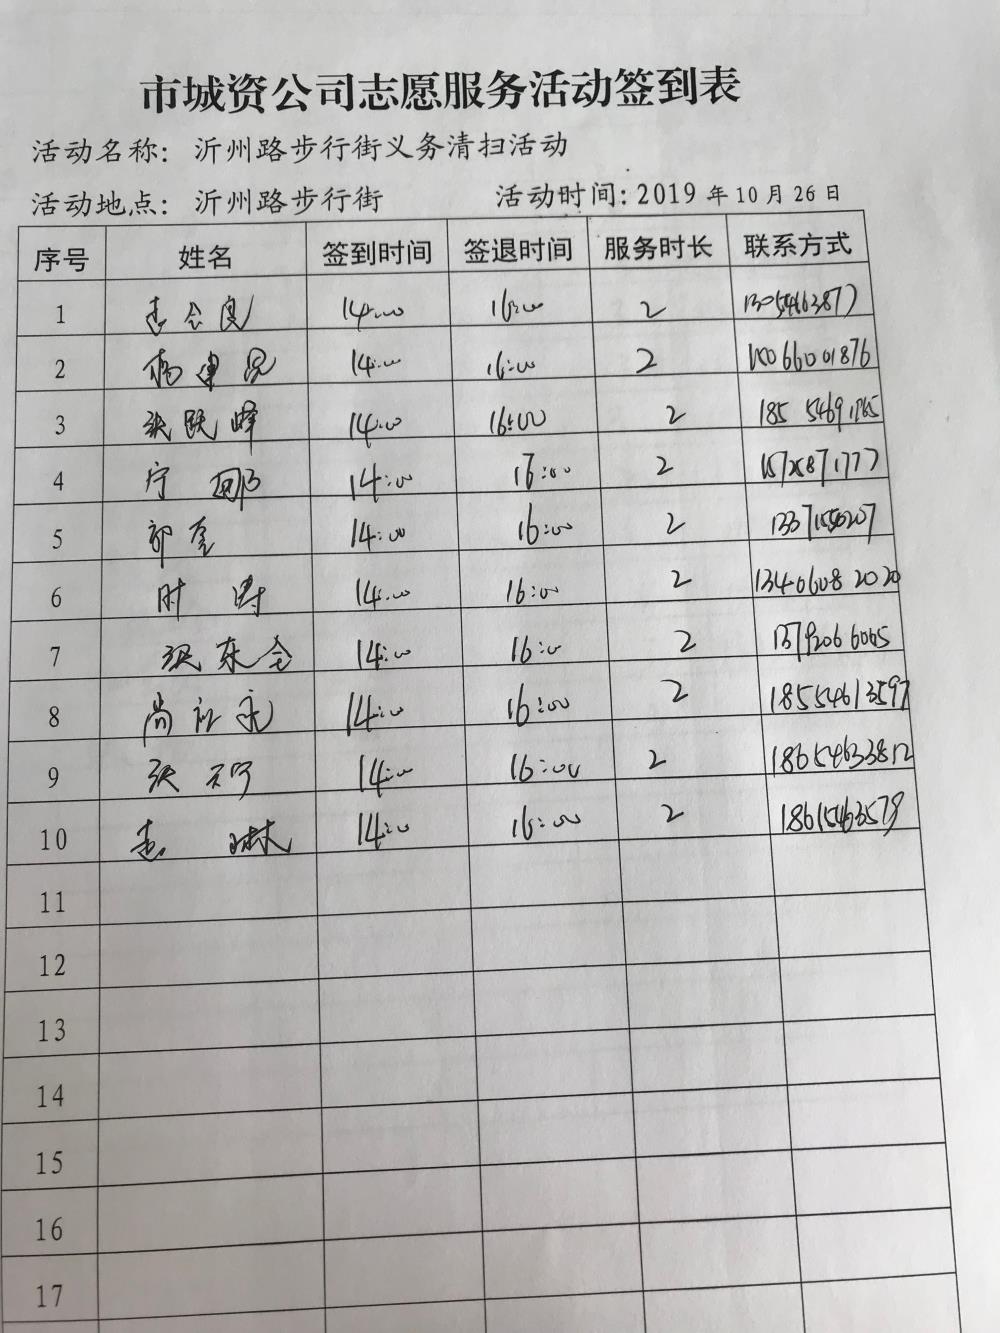 市城资公司志愿服务活动签到表
活动名称: 沂州路步行街义务清扫活动
活动地点: 沂州路步行街 活动时间: 2019 年 10 月 26 日
序号 姓名 签到时间 签退时间 服务时长 联系方式
1 14:00 16:00 2 13054663877
2 14:00 16:00 2 15066001876
3 张跃峰 14:00 16:00 2
4 宁 14:00 16:00 2
5 郭奎 14:00 16:00 2
6 时涛 14:00 16:00 2 13406082020
7 张东全 14:00 16:00 2 13792066065
8 尚 14:00 16:00 2 18554613597
9 张 14:00 16:00 2 18654633812
10 14:00 16:00 2 18615463579
11
12
13
14
15
16
17